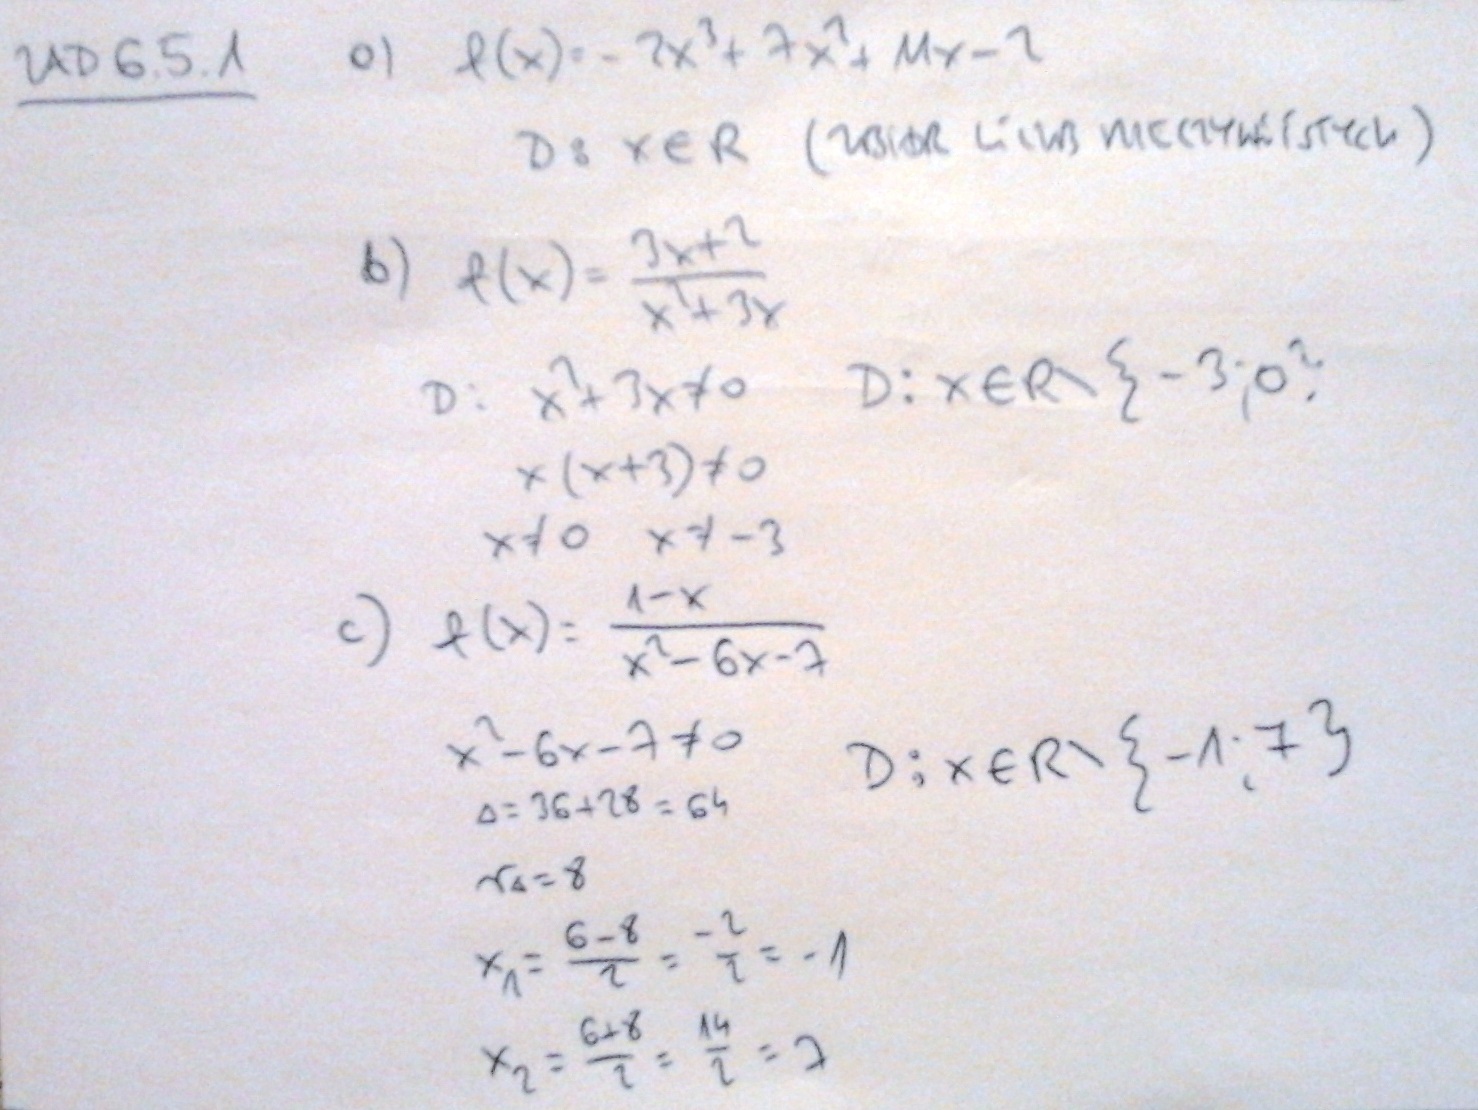 ZAD 6.5.1 a) f(x)=-2x³+7x²+11x-2
D: x∈R (ZBIÓR LICZB RZECZYWISTYCH)
b) f(x)= (3x+2)/(x²+3x)
D: x²+3x≠0 D: x∈R\{-3;0}
x(x+3)≠0
x≠0 x≠-3
c) f(x)= (1-x)/(x²-6x-7)
x²-6x-7≠0 D: x∈R\{-1;7}
Δ=36+28=64
√Δ=8
x₁= (6-8)/2 = -2/2 = -1
x₂= (6+8)/2 = 14/2 = 7